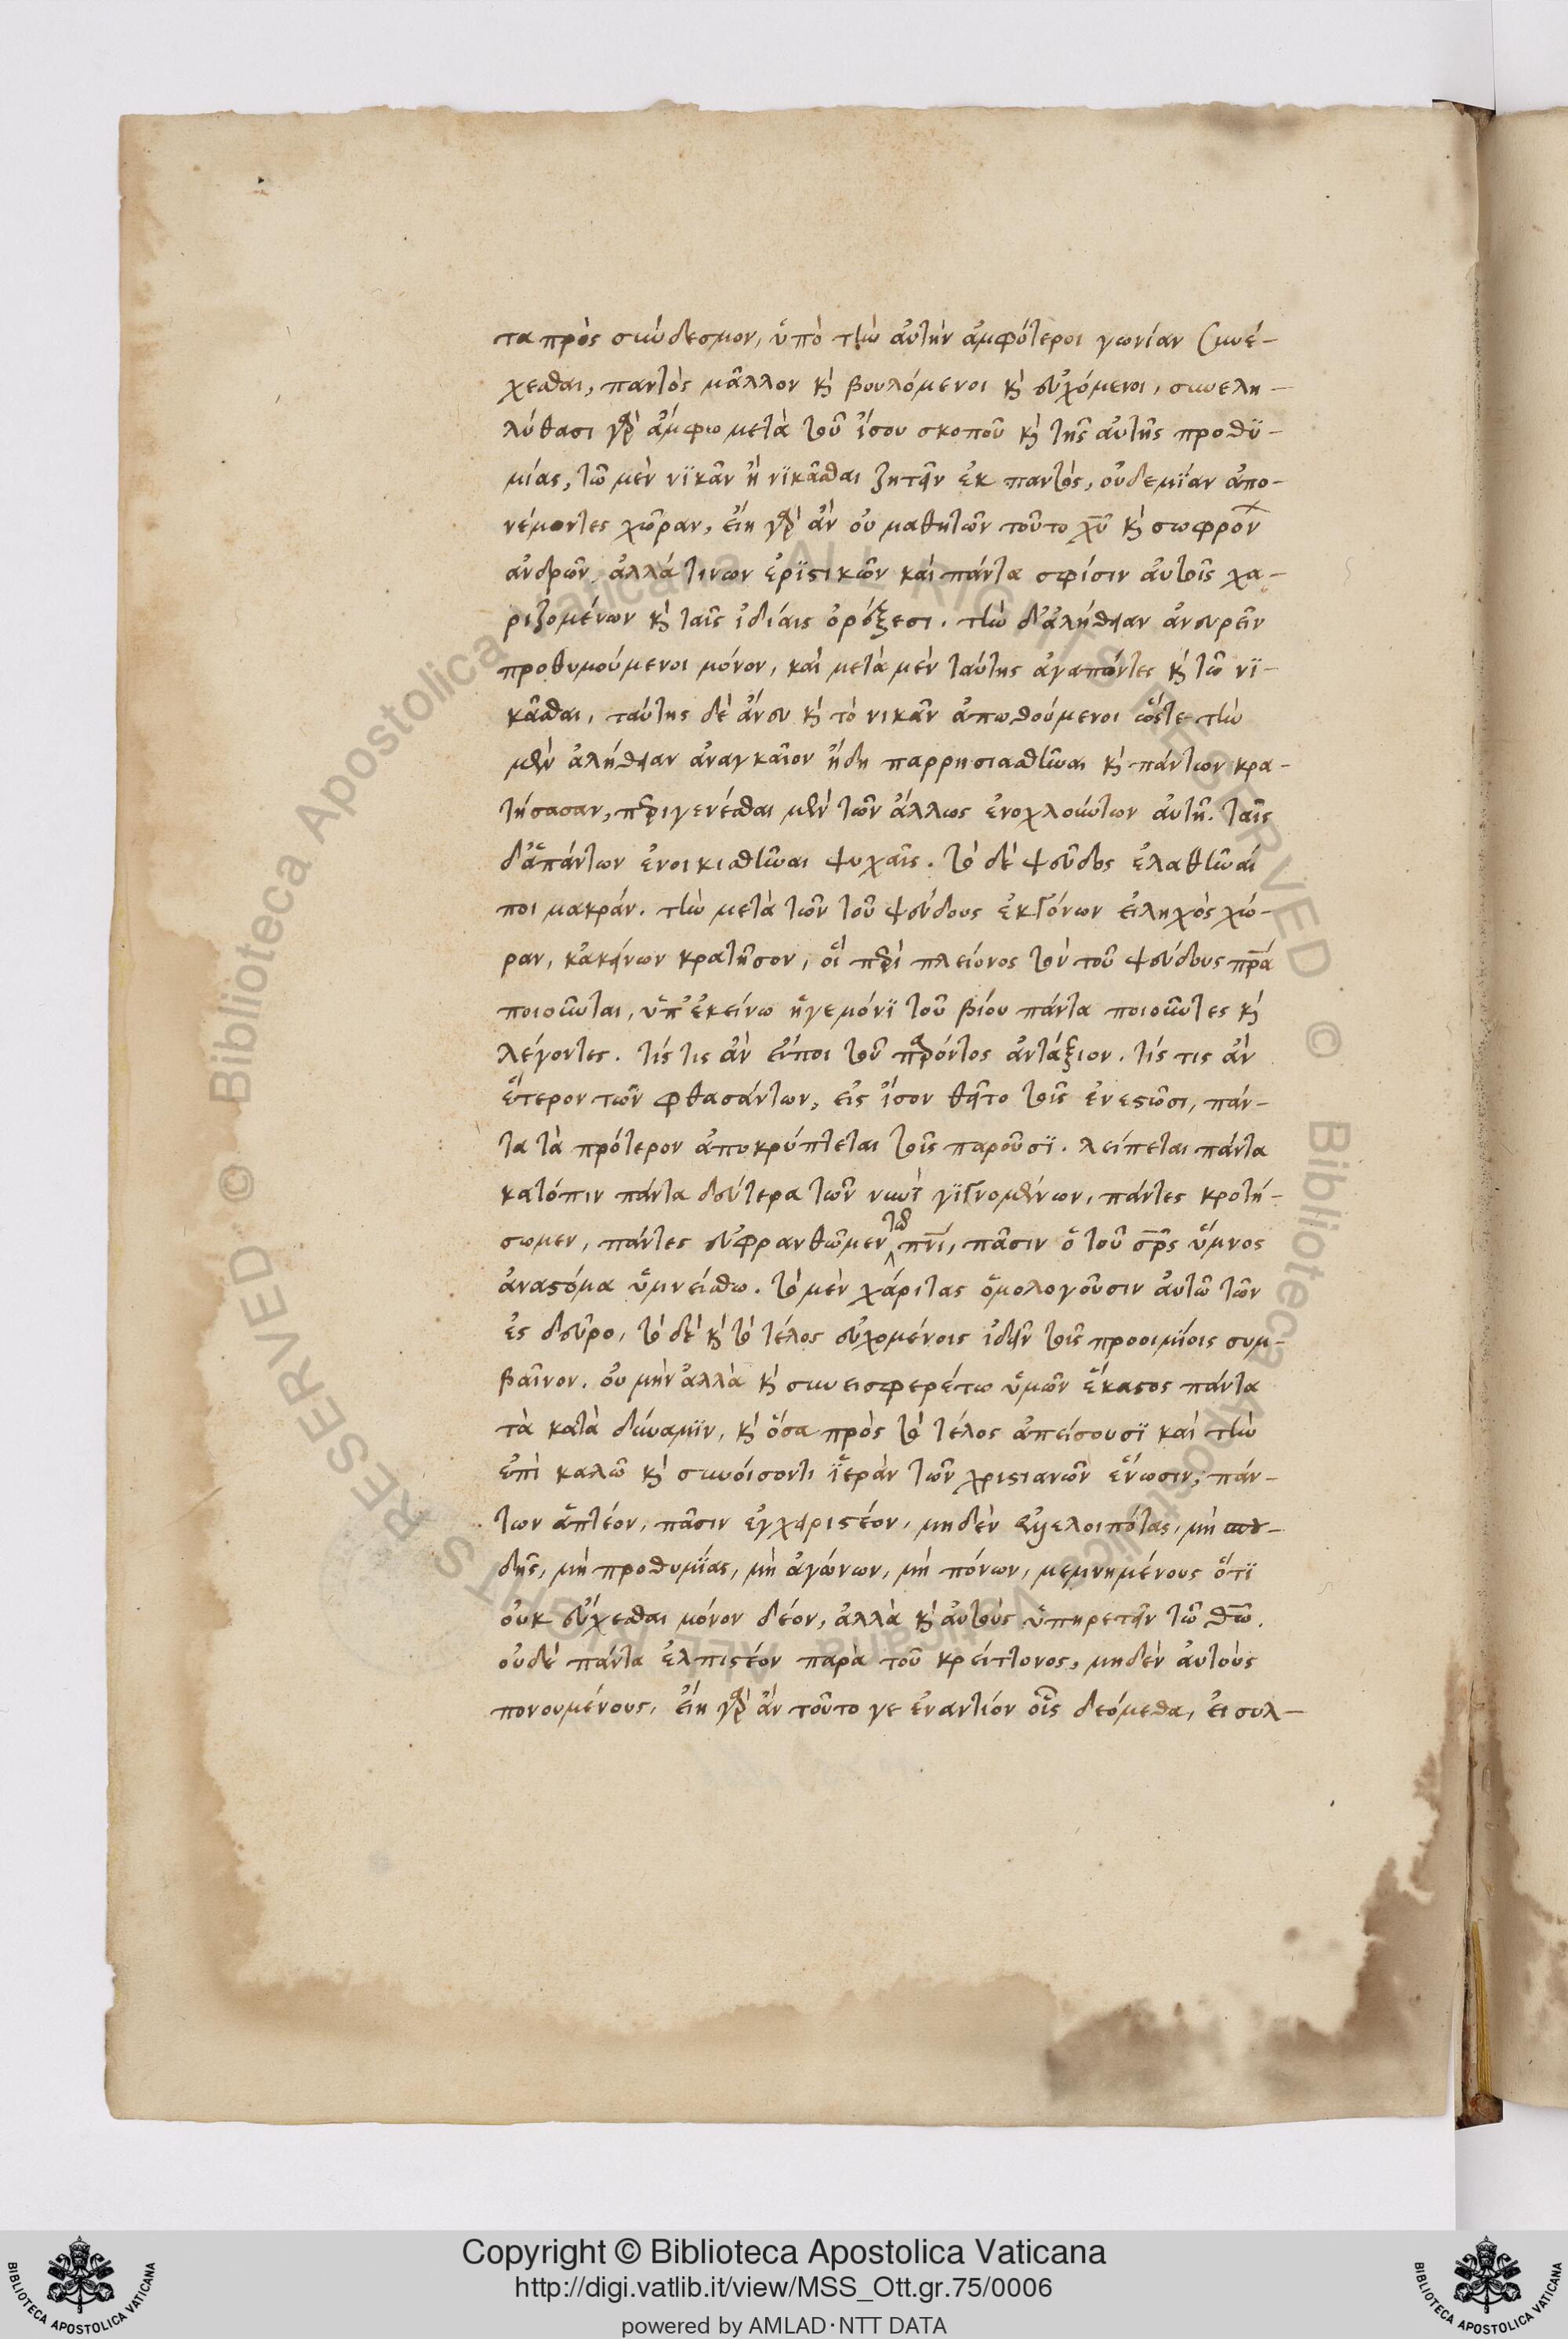 τα πρὸς σύνδεσμον, ὑπὸ τὴν αὐτὴν ἀμφότεροι γωνίαν συνέ-
χεσθαι, παντὸς μᾶλλον καὶ βουλόμενοι καὶ εὐχόμενοι, συνελη-
λύθασι γὰρ ἄμφω μετὰ τοῦ ἴσου σκοποῦ καὶ τῆς αὐτῆς προθϋ-
μίας, τῶ μὲν νϊκᾶν ἢ νϊκᾶσθαι ζητεῖν ἐκ παντὸς, οὐδεμϊαν ἀπο-
νέμοντες χῶραν, εἴη γὰρ ἂν οὐ μαθητῶν τοῦτο χ̅υ̅ καὶ σωφρόνων
ἀνδρῶν, ἀλλά τινων ἐρϊστικῶν καὶ πάντα σφίσιν αὐτοῖς χα-
ριζομένων καὶ ταῖς ἰδίαις ὀρέξεσι. τὴν δ' ἀλήθειαν ἀνευρεῖν
προθυμούμενοι μόνον, καὶ μετὰ μὲν ταύτης ἀγαπῶντες καὶ τῶ νϊ-
κᾶσθαι, ταύτης δὲ ἄνευ καὶ τὸ νικᾶν ἀπωθούμενοι ὥστε τὴν
μὲν ἀλήθειαν ἀναγκαῖον ἤδη παρρησιασθῆναι καὶ πάντων κρα-
τήσασαν, περιγενέσθαι μὲν τῶν ἄλλως ἐνοχλούντων αὐτῆ. ταῖς
δ' ἁπάντων ἐνοικισθῆναι ψυχαῖς. τὸ δὲ ψεῦδος ἐλαθῆναί
ποι μακράν. τὴν μετὰ τῶν τοῦ ψεύδους ἐκγόνων εἰληχὸς χώ-
ραν, κἀκείνων κρατῆσον, οἳ περὶ πλείονος τὸν τοῦ ψεύδους π̅ρ̅α̅
ποιοῦνται, ὑπ' ἐκείνω ἡγεμόνϊ τοῦ βίου πάντα ποιοῦντες καὶ
λέγοντες. τίς τις ἂν εἴποι τοῦ παρόντος ἀντάξιον. τίς τις ἂν
ἕτερον τῶν φθασάντων, εἰς ἴσον θεῖτο τοῖς ἐνεστῶσι, πάν-
τα τὰ πρότερον ἀποκρύπτεται τοῖς παροῦσϊ. λείπεται πάντα
κατόπιν πάντα δεύτερα τῶν νυνὶ γϊγνομένων, πάντες κροτή-
σωμεν, πάντες εὐφρανθῶμεν τῶ π̅ν̅ι̅, πᾶσιν ὁ τοῦ σ̅ρ̅ς̅ ὕμνος
ἀναστόμα ὑμνείσθω. τὸ μὲν χάριτας ὁμολογοῦσιν αὐτῶ τῶν
ἐς δεῦρο, τὸ δὲ καὶ τὸ τέλος εὐχομένοις ἰδεῖν τοῖς προοιμϊοις συμ-
βαῖνον. οὐ μὴν ἀλλὰ καὶ συνεισφερέτω ὑμῶν ἕκαστος πάντα
τὰ κατὰ δύναμϊν, καὶ ὅσα πρὸς τὸ τέλος ἀπείσουσϊ καὶ τὴν
ἐπὶ καλῶ καὶ συνοίσοντι ἱερὰν τῶν χριστιανῶν ἕνωσιν, πάν-
των ἁπτέον, πᾶσιν ἐγχειριστέον, μηδὲν ἐλλελοιπότας, μὴ σπου-
δῆς, μὴ προθυμϊας, μὴ ἀγώνων, μὴ πόνων, μεμνημένους ὅτϊ
οὐκ εὔχεσθαι μόνον δέον, ἀλλὰ καὶ αὐτοὺς ὑπηρετεῖν τῶ θ̅ω̅.
οὐδὲ πάντα ἐλπιστέον παρὰ τοῦ κρείττονος, μηδὲν αὐτοὺς
πονουμένους, εἴη γὰρ ἂν τοῦτο γε ἐναντίον οἷς δεόμεθα, εἰ συλ-
Copyright © Biblioteca Apostolica Vaticana
http://digi.vatlib.it/view/MSS_Ott.gr.75/0006
powered by AMLAD·NTT DATA